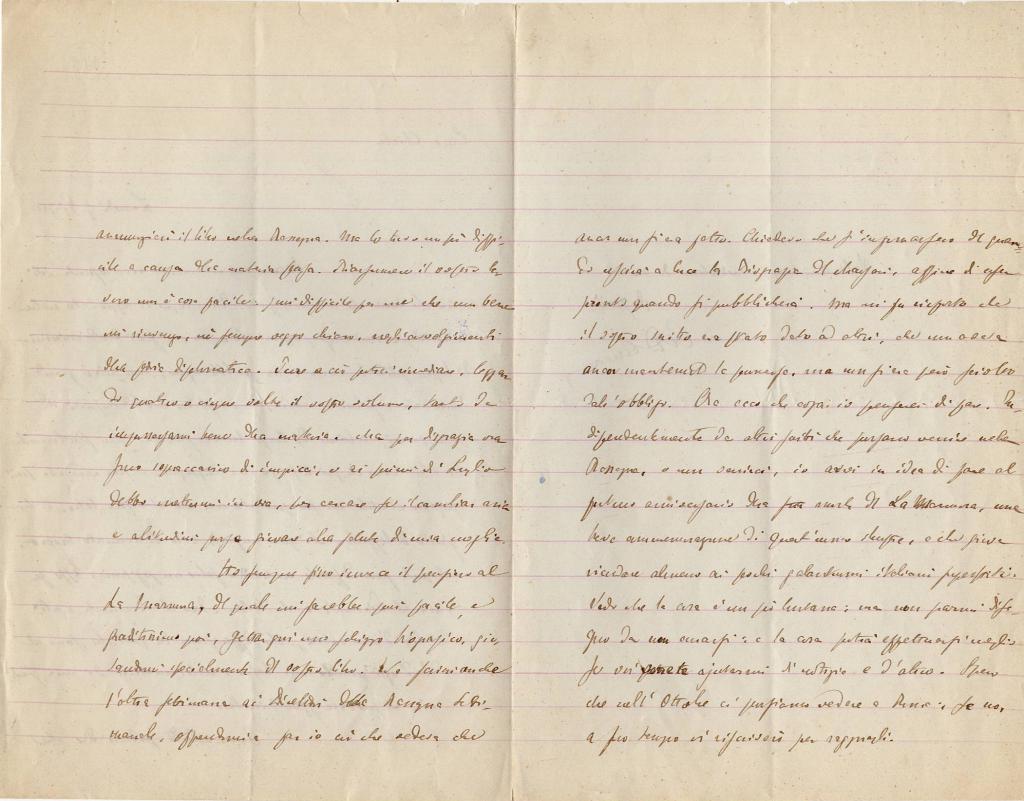 annunziarsi il libro nella Rassegna. Ma lo trovo un più diffi-
cile a causa della materia stessa. Riassumere il vostro la-
voro non è cosa facile: più difficile per me che non bene
mi rinvengo, nè sempre veggo chiaro, negli avvolgimenti
della storia diplomatica. Pure a ciò potrei rimediare, leggen-
do quattro o cinque volte il vostro volume, tanto da
impossessarmi bene della materia. Ma per disgrazia ora
sono sopraccarico di impicci, e ai primi di Luglio
debbo mettermi in via, per cercare se il cambiar aria
e altitudini possa giovare alla salute di mia moglie.
Ho sempre fisso invece il pensiero al
La Marmora, del quale mi sarebbe più facile, e
graditissimo poi, gettar giù uno schizzo biografico, gio-
vandomi specialmente del vostro libro. Ne scrissi anche
l'altra settimana ai Direttori della Rassegna Setti-
manale, offrendomi far io ciò che vedeva che
ancor non si era fatto. Chiedevo che s'informassero del quan-
do uscirà a luce la Biografia del Massari, affine di esser
pronto quando si pubblicherà. Ma mi fu risposto che
il vostro scritto era stato dato ad altri, che non aveva
ancor mantenuto la promessa, ma non si era però sciolto
dall'obbligo. Ora ecco che cosa io penserei di fare. In-
dipendentemente da altri scritti che possano venire nella
Rassegna, o non venirci, io avrei in idea di fare al
primo anniversario della morte del La Marmora, una
breve commemorazione di quest'uomo illustre, e che giova
ricordare almeno ai pochi galantuomini italiani superstiti.
Vedo che la cosa è un più lontana: ma non parmi dise-
gno da non curarsi: e la cosa potrà effettuarsi meglio
se voi vorrete ajutarmi di notizie e d'altro. Spero
che nell'Ottobre ci possiamo vedere a Pisa: se no,
a suo tempo vi riscriverò per ragguagli.